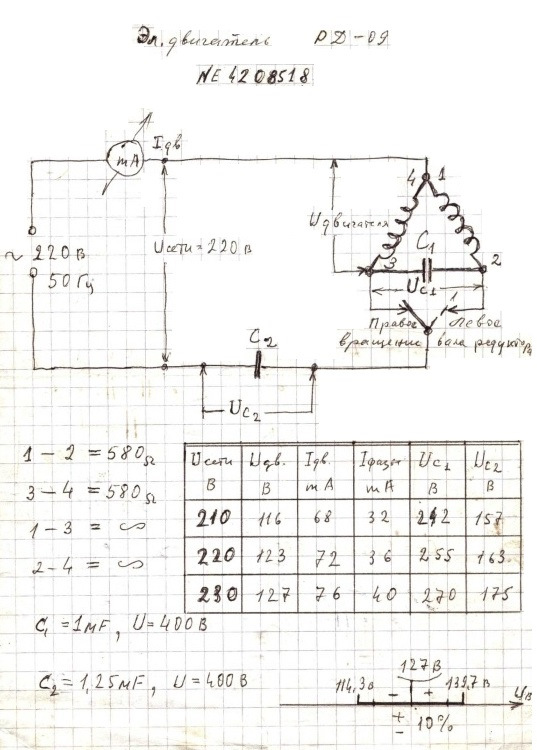 Эл. двигатель РД-09
NE 4208518
mA
Iдв
4
1
Uдвигателя
C1
~ 220 в
50 Гц
Uсети = 220 в
3
2
Uc1
1
Правое
Левое
вращение
вала редуктора
C2
Uc2
1 - 2 = 580 Ω
3 - 4 = 580 Ω
1 - 3 = ∞
2 - 4 = ∞
Uсети В | Uдв. В | Iдв. mA | Iфазы mA | Uc1 В | Uc2 В
210 | 116 | 68 | 32 | 242 | 157
220 | 123 | 72 | 36 | 255 | 163
230 | 127 | 76 | 40 | 270 | 175
C1 = 1MF, U = 400 В
C2 = 1,25MF, U = 400 В
127 В
114,3 в
139,7 В
- +
Uв
± 10%